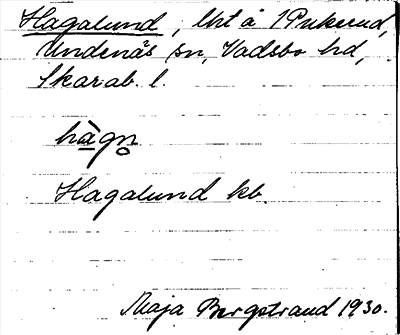 Hagalund, lht å 1 Pukerud,
Undenäs sn, Vadsbo hd,
Skarab. l.
hàgn̥
Hagalund kb.
Maja Bergstrand 1930.